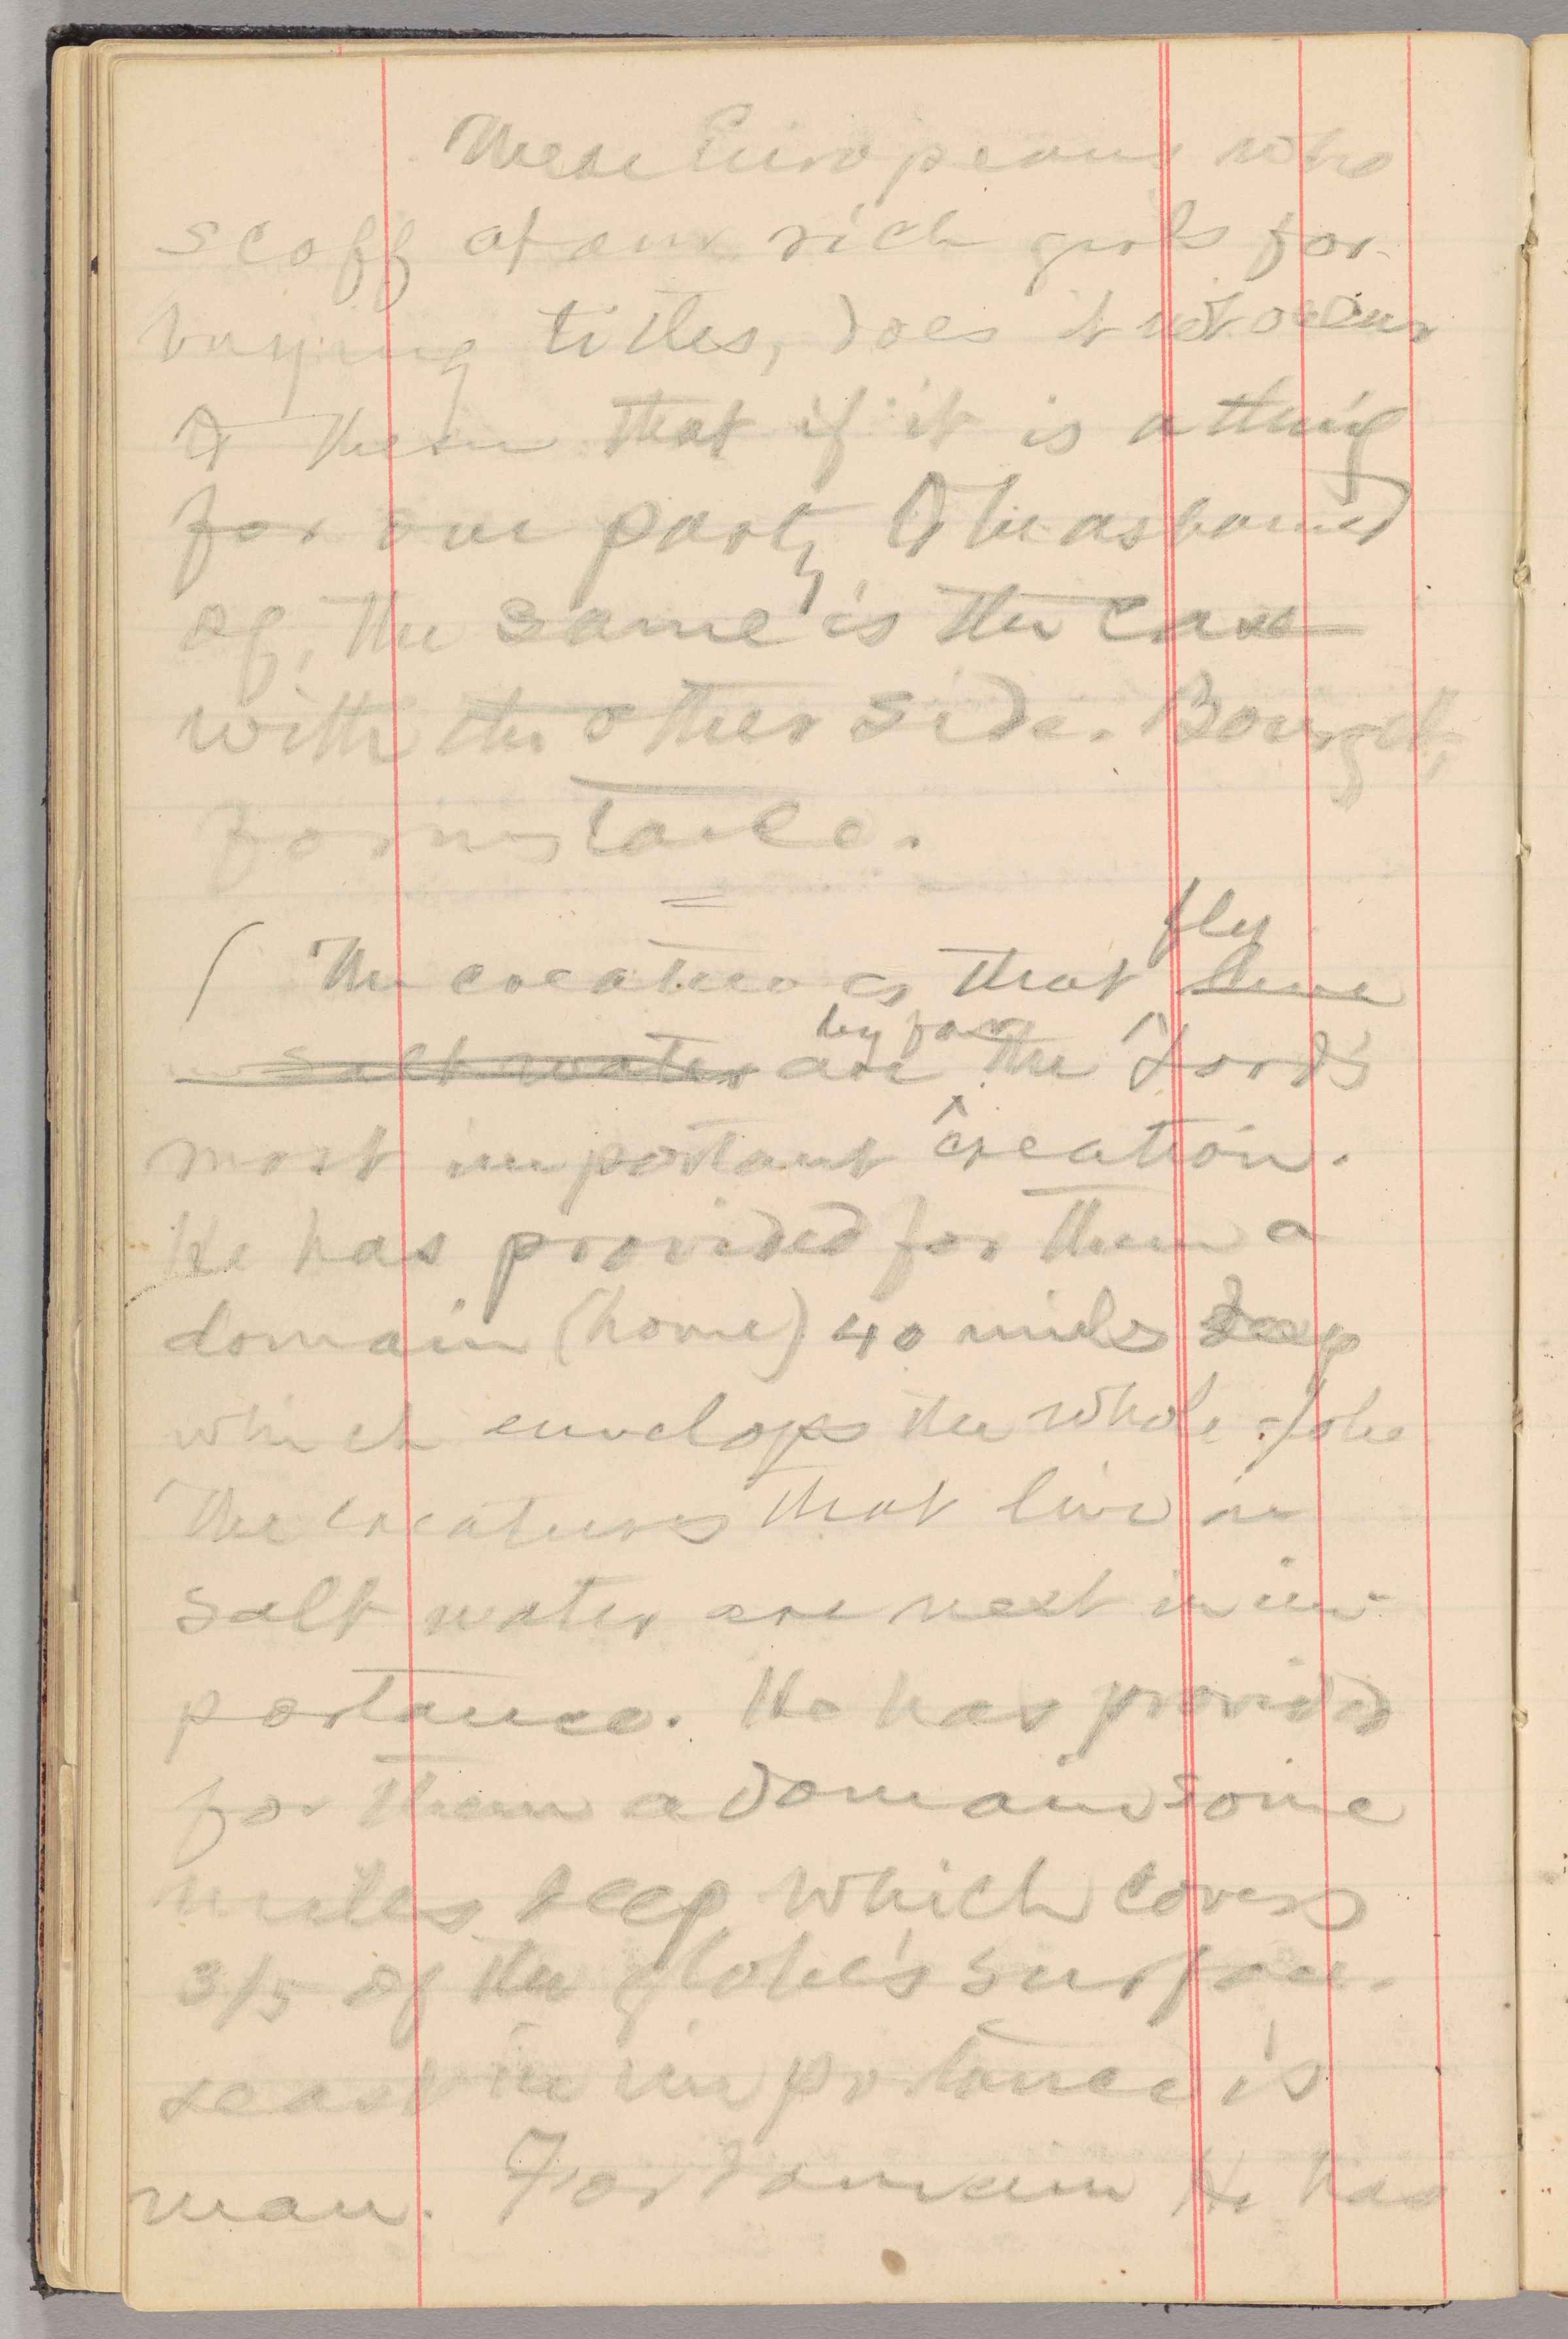 These Europeans who
scoff at our rich girls for
buying titles, does it not occur
to them that if it is a thing
for our party to be ashamed
of, the same is the case
with the other side. Bourget,
for instance.
=
( The creatures that live fly
in salt water are by far the Lord's
most important creation.
He has provided for them a
domain (home) 40 miles deep
which envelops the whole globe
The creatures that live in
salt water are next in im-
portance. He has provided
for them a domain some
miles deep which covers
3/5 of the globe's surface.
Least in importance is
man. For domain He has